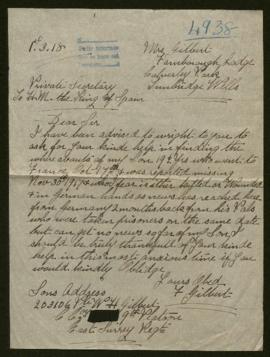 4938
1.3.18
Mrs Gilbert
Farnborough Lodge
Calverley Park
Tunbridge Wells
Private Secretary
To H.M. the King of Spain
Dear Sir
I have been advised to wright to you to
ask for your kinde help in finding the
where abouts of my Son 19 yrs who went to
France Oct 17 & was reported missing
Nov 30 1917 & who I fear is either killed or Wounded
& in German hands as news has reached here
from Germany months back from his Pals
who were taken prisoners on the same date
but can get no news so far of my Son I
should be truly thankfull of your kinde
help in this most anxious time if you
would kindly Oblidge
Yours Obed
F Gilbert
Sons Address
203106 Pte W H Gilbert
Co 9th Platoon
East Surrey Regt